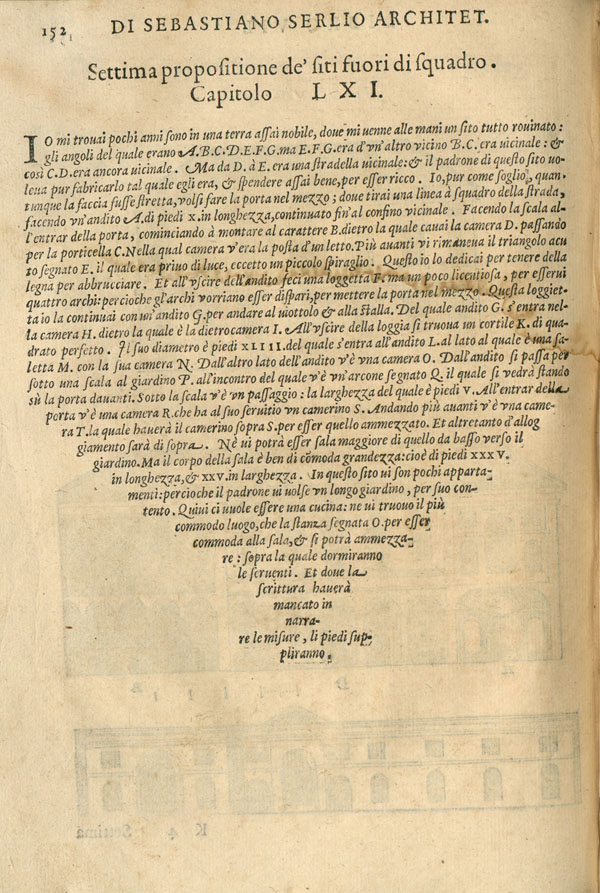 152 DI SEBASTIANO SERLIO ARCHITET.
Settima propositione de' siti fuori di squadro.
Capitolo LXI.
IO mi trouai pochi anni sono in una terra assai nobile, doue mi uenne alle mani un sito tutto rouinato:
gli angoli del quale erano A.B.C.D.E.F.G.ma E.F.G.era d'vn'altro vicino B.C.era uicinale: &
così C.D.era ancora uicinale. Ma da D. à E.era una stradella uicinale:& il padrone di questo sito uo-
leua pur fabricarlo tal quale egli era, & spendere assai bene, per esser ricco. Io,pur come soglio, quan-
tunque la faccia fusse stretta,volsi fare la porta nel mezzo; doue tirai una linea à squadro della strada,
facendo vn'andito A.di piedi x.in longhezza,continuato fin'al confino vicinale. Facendo la scala al-
l'entrar della porta, cominciando à montar al carattere B.dietro la quale cauai la camera D.passando
per la porticella C.Nella qual camera v'era la posta d'un letto.Più auanti vi rimaneua il triangolo acu
to segnato E.il quale era priuo di luce, eccetto un piccolo spiraglio. Questo io lo dedicai per tenere della
legna per abbrucciare. Et all'vscire dell'andito feci una loggetta F.ma un poco licentiosa, per esserui
quattro archi: percioche gl'archi vorriano esser dispari,per mettere la porta nel mezzo. Questa loggiet-
ta io la continuai con un'andito G.per andare al uiottolo & alla stalla. Del quale andito G.s'entra nel-
la camera H. dietro la quale è la dietrocamera I. All'vscire della loggia si truoua un cortile K. di qua-
drato perfetto. Il suo diametro è piedi XLIIII.del quale s'entra all'andito L.al lato al quale è una sa-
letta M. con la sua camera N. Dall'altro lato dell'andito v'è vna camera O. Dall'andito si passa per
sotto una scala al giardino P.all'incontro del quale v'è vn'arcone segnato Q. il quale si vedrà stando
sù la porta dauanti. Sotto la scala v'è un passaggio: la larghezza del quale è piedi V. All'entrar della
porta v'è una camera R.che ha al suo seruitio vn camerino S. Andando più auanti v'è vna came-
ra T.la quale hauerà il camerino sopra S.per esser quello ammezzato. Et altretanto d'allog
giamento sarà di sopra. Nè ui potrà esser sala maggiore di quello da basso verso il
giardino.Ma il corpo della sala è ben di cōmoda grandezza:cioè di piedi XXXV.
in longhezza,& XXV.in larghezza. In questo sito ui son pochi apparta-
menti:percioche il padrone ui uolse vn longo giardino, per suo con-
tento. Quiui ci uuole essere una cucina: ne ui truouo il più
commodo luogo,che la stanza segnata O.per esser
commoda alla sala,& si potrà ammezza-
re: sopra la quale dormiranno
le seruenti. Et doue la
scrittura hauerà
mancato in
narra-
re le misure, li piedi sup-
pliranno.
K 4 Settima